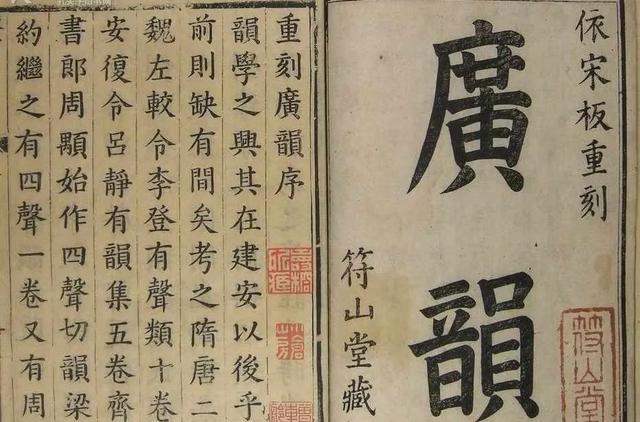 依宋板重刻
廣韻
符山堂藏
符山堂
重刻廣韻序
韻學之興其在建安以後乎
前則缺有間矣考之隋唐二
魏左較令李登有聲類十卷
安復令呂靜有韻集五卷齊
書郎周顒始作四聲切韻梁
約繼之有四聲一卷又有周